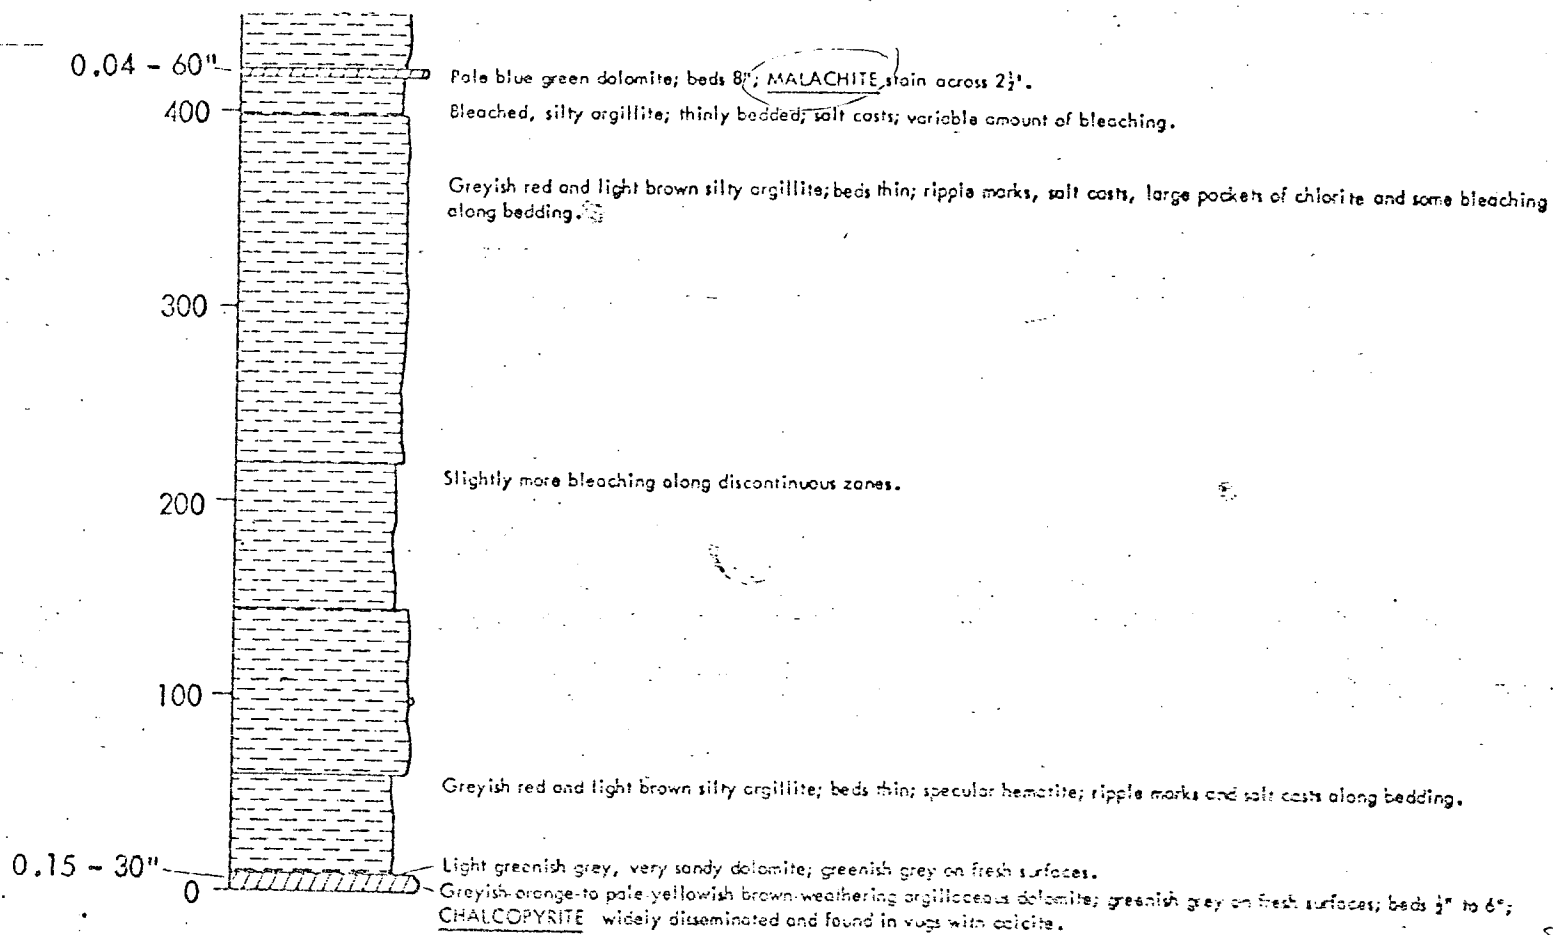 0.04 - 60"
Pale blue green dolomite; beds 8"; MALACHITE stain across 2½'.
400
Bleached, silty argillite; thinly bedded; salt casts; variable amount of bleaching.
Greyish red and light brown silty argillite; beds thin; ripple marks, salt casts, large pockets of chlorite and some bleaching
along bedding.
300
Slightly more bleaching along discontinuous zones.
200
100
Greyish red and light brown silty argillite; beds thin; specular hematite; ripple marks and salt casts along bedding.
0.15 - 30"
Light greenish grey, very sandy dolomite; greenish grey on fresh surfaces.
0
Greyish-orange-to pale yellowish brown-weathering argillaceous dolomite; greenish grey on fresh surfaces; beds ½" to 6";
CHALCOPYRITE widely disseminated and found in vugs with calcite.